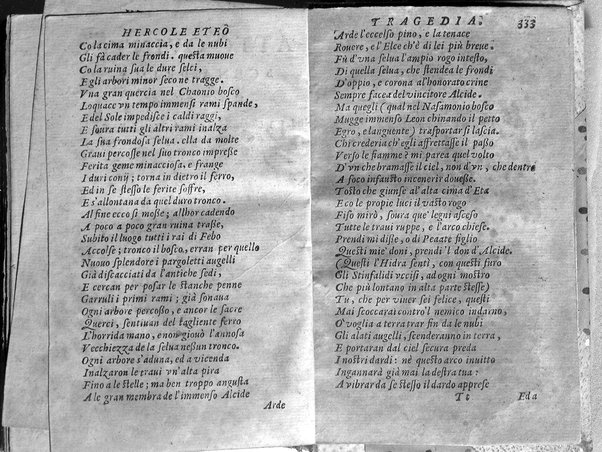 HERCOLE ETEO
Co la cima minaccia, e da le nubi
Gli fà cader le frondi. questa muoue
Co la ruina sua le dure selci,
E gli arbori minor seco ne tragge.
Vna gran quercia nel Chaonio bosco
Loquace vn tempo immensi rami spande,
E del Sole impedisce i caldi raggi,
E soura tutti gli altri rami inalza
La sua frondosa selua. ella da molte
Graui percosse nel suo tronco impresse
Ferita geme minacciosa, e frange
I duri conij; torna in dietro il ferro,
Ed in se stesso le ferite soffre,
E s'allontana da quel duro tronco.
Al fine ecco si mosse; allhor cadendo
A poco a poco gran ruina trasse,
Subito il luogo tutti i rai di Febo
Accolse; tronco il bosco, erran per quello
Nuouo splendore i pargoletti augelli
Già discacciati da l'antiche sedi,
E cercan per posar le stanche penne
Garruli i primi rami; già sonaua
Ogni arbore percosso, e ancor le sacre
Querci, sentiuan del tagliente ferro
L'horrida mano, e non giouò l'annosa
Vecchiezza de la selua ne sun tronco.
Ogni arbore s'aduna, ed a vicenda
Inalzaron le traui vn'alta pira
Fino a le stelle; ma ben troppo angusta
A le gran membra de l'immenso Alcide
Arde
TRAGEDIA. 333
Arde l'eccelso pino, e la tenace
Rouere, e l'Elce ch'è di lei più breue.
Fù d'vna selua l'ampio rogo intesto,
Di quella selua, che stendea le frondi
D'oppio, e corona al'honorato crine
Sempre facea del vincitore Alcide.
Ma quegli (qual nel Nasamonio bosco
Mugge immenso Leon chinando il petto
Egro, e languente) trasportar si lascia.
Chi crederia ch'egli affrettasse il passo
Verso le fiamme? mi parea quel volto
D'vn che bramasse il ciel, non d'vn, che dentro
A foco infausto incenerir douesse.
Tosto che giunse al'alta cima d'Eta
E co le propie luci il vasto rogo
Fiso mirò, soura que' legni asceso
Tutte le traui ruppe, e l'arco chiese.
Prendi mi disse, o di Peante figlio
Questi mie' doni, prendi 'l don d'Alcide.
(Questi l'Hidra sentì, con questi furo
Gli Stinfalidi vccisi, ad ogni mostro
Che più lontano in alta parte stesse)
Tu, che per viuer sei felice, questi
Mai scoccarai contro'l nemico indarno,
O' voglia a terra trar fin da le nubi
Gli alati augelli, scenderanno in terra,
E portaran dal ciel secura preda
I nostri dardi: nè questo arco inuitto
Ingannarà già mai la destra tua:
A vibrar da se stesso il dardo apprese
Tt Ed a